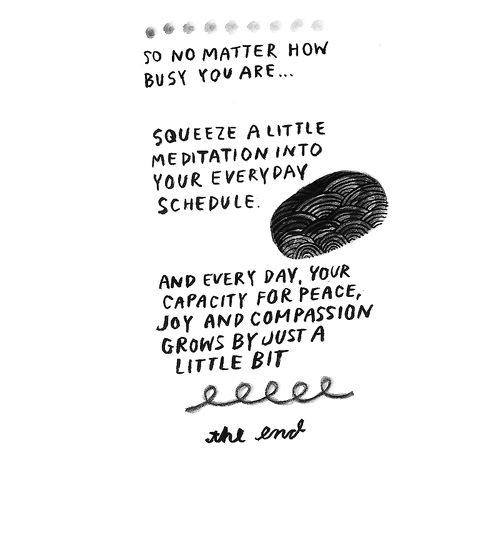 SO NO MATTER HOW
BUSY YOU ARE...
SQUEEZE A LITTLE
MEDITATION INTO
YOUR EVERYDAY
SCHEDULE.
AND EVERY DAY, YOUR
CAPACITY FOR PEACE,
JOY AND COMPASSION
GROWS BY JUST A
LITTLE BIT
the end